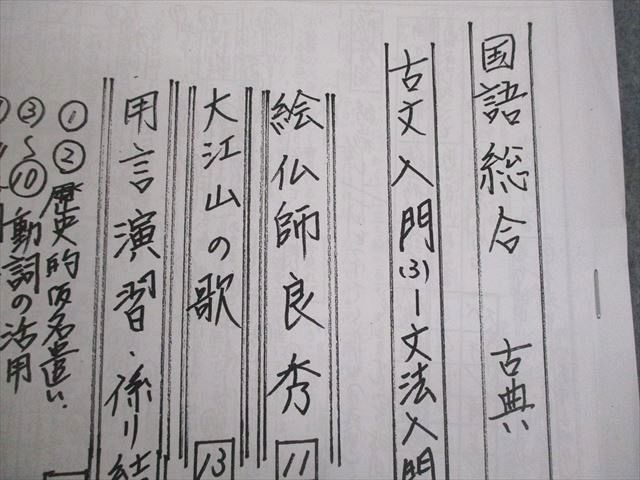 国語総合　古典
古文入門(3)ー文法入門
絵仏師良秀　11
大江山の歌　13
用言演習・係り結
①②歴史的仮名遣い、
③〜⑩動詞の活用